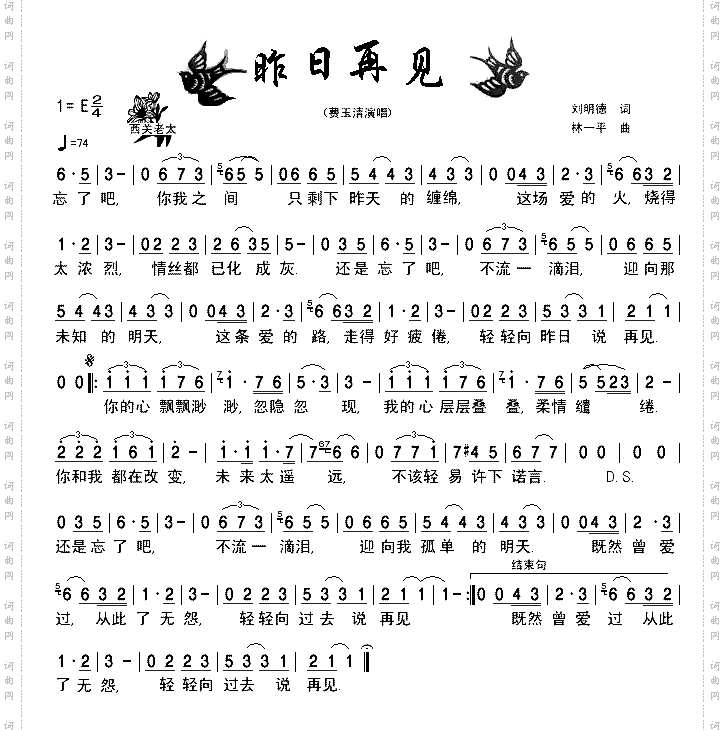 昨日再见
(费玉清演唱)
1=E 2/4
西关老太
刘明德 词
林一平 曲
♩=74
6·5|3-|0 6 7 3|5 6 5 5|0 6 6 5|5 4 4 3|4 3 3|0 0 4 3|2·3|5 6 6 3 2|
忘了吧, 你我之 间 只剩下 昨天 的 缠绵, 这场 爱的 火,烧得
1·2|3-|0 2 2 3|2 6 3 5|5-|0 3 5|6·5|3-|0 6 7 3|5 6 5 5|0 6 6 5|
太 浓 烈, 情丝都 已化 成灰. 还是 忘了 吧, 不流一 滴泪, 迎向那
5 4 4 3|4 3 3|0 0 4 3|2·3|5 6 6 3 2|1·2|3-|0 2 2 3|5 3 3 1|2 1 1|
未知 的 明天, 这条 爱的 路,走得 好 疲 倦, 轻轻向 昨日 说 再见.
0 0‖: 1 1 1 1 7 6|7 1·7 6|5·3|1 1 1 1 7 6|7 1·7 6|5 5 2 3|2-|
你的心 飘飘渺 渺,忽隐 忽 现, 我的心 层层叠 叠,柔情 缱 绻.
2 2 2 1 6 1|2-|1·1|1·7|7 67 6 6|0 7 7 1|7 #4 4 5|6 7 7|0 0|0 0|
你和我 都在改 变, 未 来 太 遥 远, 不该轻 易 许下 诺言. D.S.
0 3 5|6·5|3-|0 6 7 3|5 6 5 5|0 6 6 5|5 4 4 3|4 3 3|0 0 4 3|2·3|
还是 忘了 吧, 不流一 滴泪, 迎向我 孤单 的 明天. 既然 曾爱
结束句
5 6 6 3 2|1·2|3-|0 2 2 3|5 3 3 1|2 1 1|1-:‖0 0 4 3|2·3|5 6 6 3 2|
过, 从此 了无 怨, 轻轻向 过去 说 再见 既然 曾爱 过 从此
1·2|3-|0 2 2 3|5 3 3 1|2 1 1‖
了无 怨, 轻轻向 过去 说 再见.
词曲网